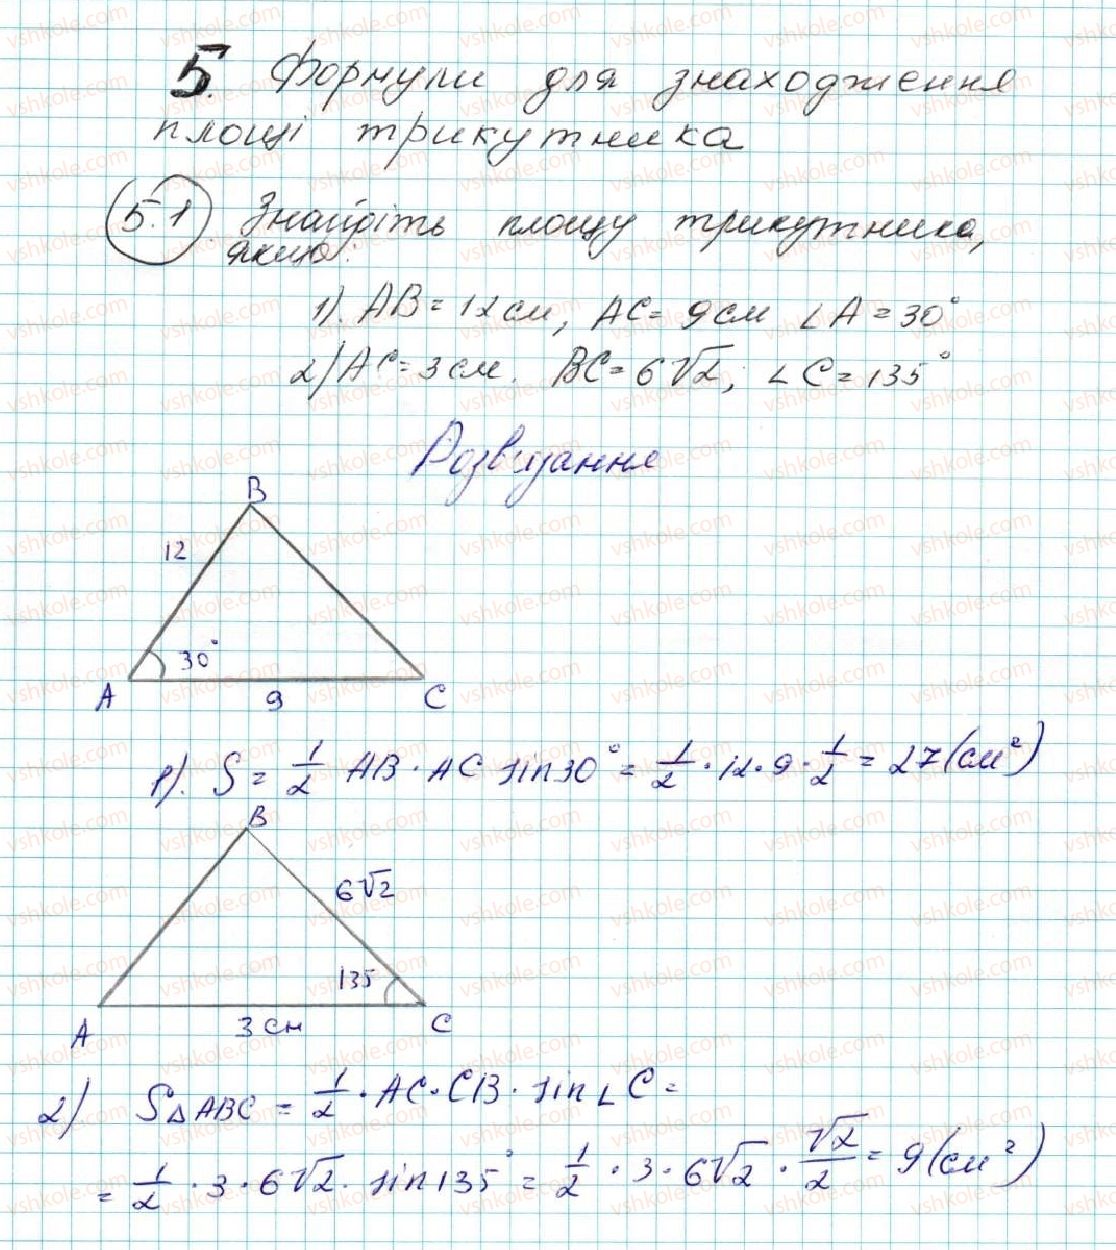 5. Формули для знаходження
площі трикутника
5.1. Знайдіть площу трикутника,
якщо:
1). AB = 12 см, AC = 9 см ∠A = 30°
2) AC = 3 см. BC = 6√2; ∠C = 135°
Розв'язання
B
12
30°
A
9
C
1). S = 1/2 AB · AC sin 30° = 1/2 · 12 · 9 · 1/2 = 27 (см²)
B
6√2
135
A
3 см
C
2) S△ABC = 1/2 · AC · CB · sin∠C =
= 1/2 · 3 · 6√2 · sin 135° = 1/2 · 3 · 6√2 · √2/2 = 9 (см²)
vshkole.com